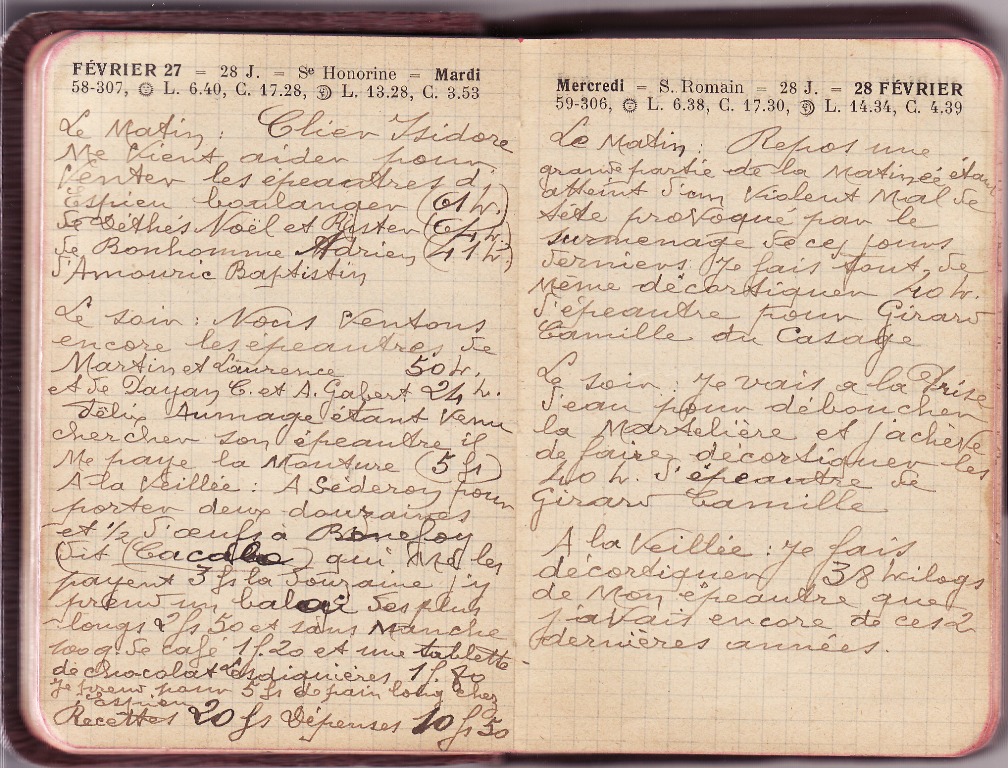 FÉVRIER 27 = 28 J. = Se Honorine = Mardi
58-307, L. 6.40, C. 17.28, L. 13.28, C. 3.53
Le Matin : Clier Isidore
me vient aider pour
Venter les épeautres d'
Espieu boulanger (61 k.)
de Dethès Noël et
de Bonhomme Adrien (41 k.)
d'Amouric Baptistin
Le soir : Nous Ventons
encore les epeautres de
Martin et Laurence 50 k.
et de Dayan C. et A. Gabert 24 k.
Aumage étant venu
chercher son épeautre il
me paye la Mouture (5 fs)
A la Veillée : A Séderon pour
porter deux douzaines
et ½ d'œufs à Bonefoy
Dit (Cacalo) qui me les
payent 3 fs la douzaine j'y
prend un balai des plus
longs 2 fs 50 et sans Manche
100 g. de café 1 f. 20 et une tablette
de chocolat Lesdiguières 1 f. 80
Je prend pour 5 fs de pain long chez
Espieu
Recettes 20 fs Dépenses 10 fs 50
Mercredi = S. Romain = 28 J. = 28 FÉVRIER
59-306, L. 6.38, C. 17.30, L. 14.34, C. 4.39
Le Matin : Repos une
grande partie de la Matinée étant
atteint d'un Violent Mal de
tête provoqué par le
surmenage de ces jours
derniers. Je fais tout de
même décortiquer 40 k.
d'épeautre pour Girard
Camille du Casage
Le soir : Je vais a la Prise
d'eau pour déboucher
la Martelière et j'achève
de faire décortiquer les
40 k. d'épeautre de
Girard Camille
A la Veillée : Je fais
décortiquer 38 kilogs
de Mon épeautre que
j'avais encore de ces 2
dernières années.